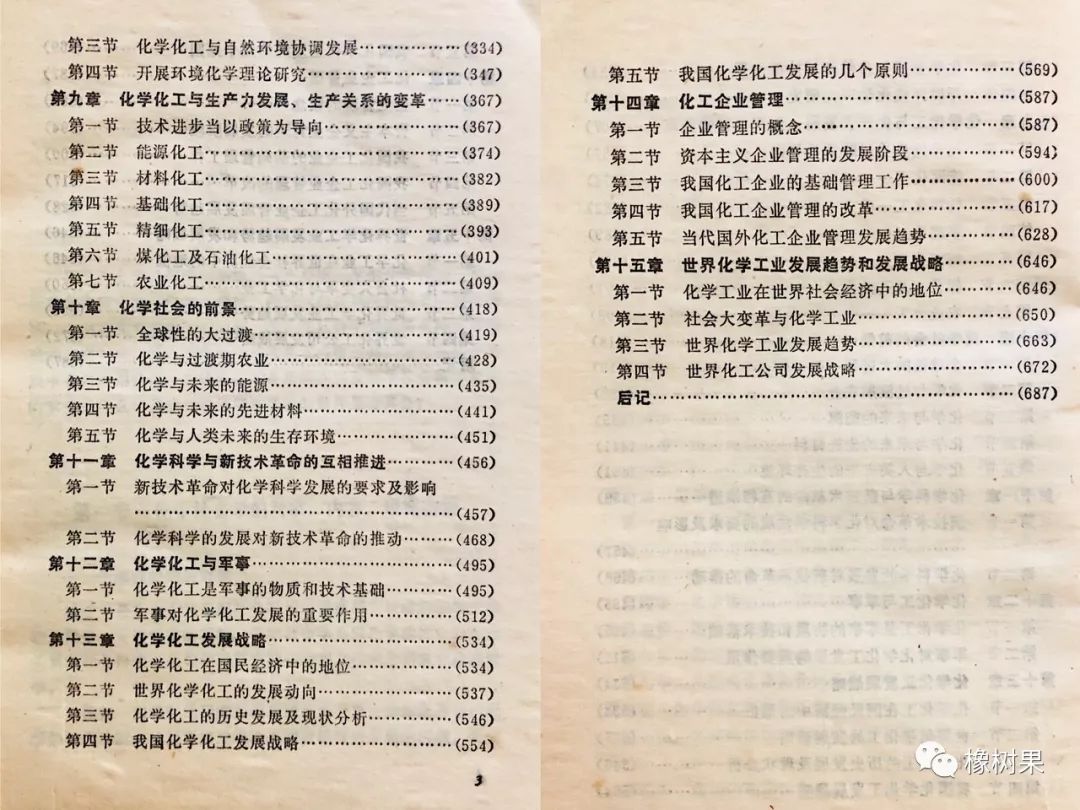 第三节 化学化工与自然环境协调发展………………(334)
第四节 开展环境化学理论研究……………………(347)
第九章 化学化工与生产力发展、生产关系的变革…(367)
第一节 技术进步当以政策为导向…………………(367)
第二节 能源化工……………………………………(374)
第三节 材料化工……………………………………(382)
第四节 基础化工……………………………………(389)
第五节 精细化工……………………………………(393)
第六节 煤化工及石油化工…………………………(401)
第七节 农业化工……………………………………(409)
第十章 化学社会的前景………………………………(418)
第一节 全球性的大过渡……………………………(419)
第二节 化学与过渡期农业…………………………(428)
第三节 化学与未来的能源…………………………(435)
第四节 化学与未来的先进材料……………………(441)
第五节 化学与人类未来的生存环境………………(451)
第十一章 化学科学与新技术革命的互相推进………(456)
第一节 新技术革命对化学科学发展的要求及影响
……………………………………………(457)
第二节 化学科学的发展对新技术革命的推动……(468)
第十二章 化学化工与军事……………………………(495)
第一节 化学化工是军事的物质和技术基础………(495)
第二节 军事对化学化工发展的重要作用…………(512)
第十三章 化学化工发展战略…………………………(534)
第一节 化学化工在国民经济中的地位……………(534)
第二节 世界化学化工的发展动向…………………(537)
第三节 化学化工的历史发展及现状分析…………(546)
第四节 我国化学化工发展战略……………………(554)
3
第五节 我国化学化工发展的几个原则……………(569)
第十四章 化工企业管理………………………………(587)
第一节 企业管理的概念……………………………(587)
第二节 资本主义企业管理的发展阶段……………(594)
第三节 我国化工企业的基础管理工作……………(600)
第四节 我国化工企业管理的改革…………………(617)
第五节 当代国外化工企业管理发展趋势…………(628)
第十五章 世界化学工业发展趋势和发展战略………(646)
第一节 化学工业在世界社会经济中的地位………(646)
第二节 社会大变革与化学工业……………………(650)
第三节 世界化学工业发展趋势……………………(663)
第四节 世界化工公司发展战略……………………(672)
后记……………………………………………………(687)
橡树果